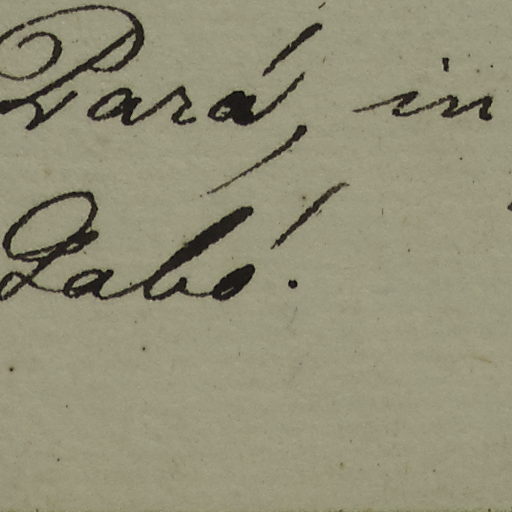 Pará, in
Labó.